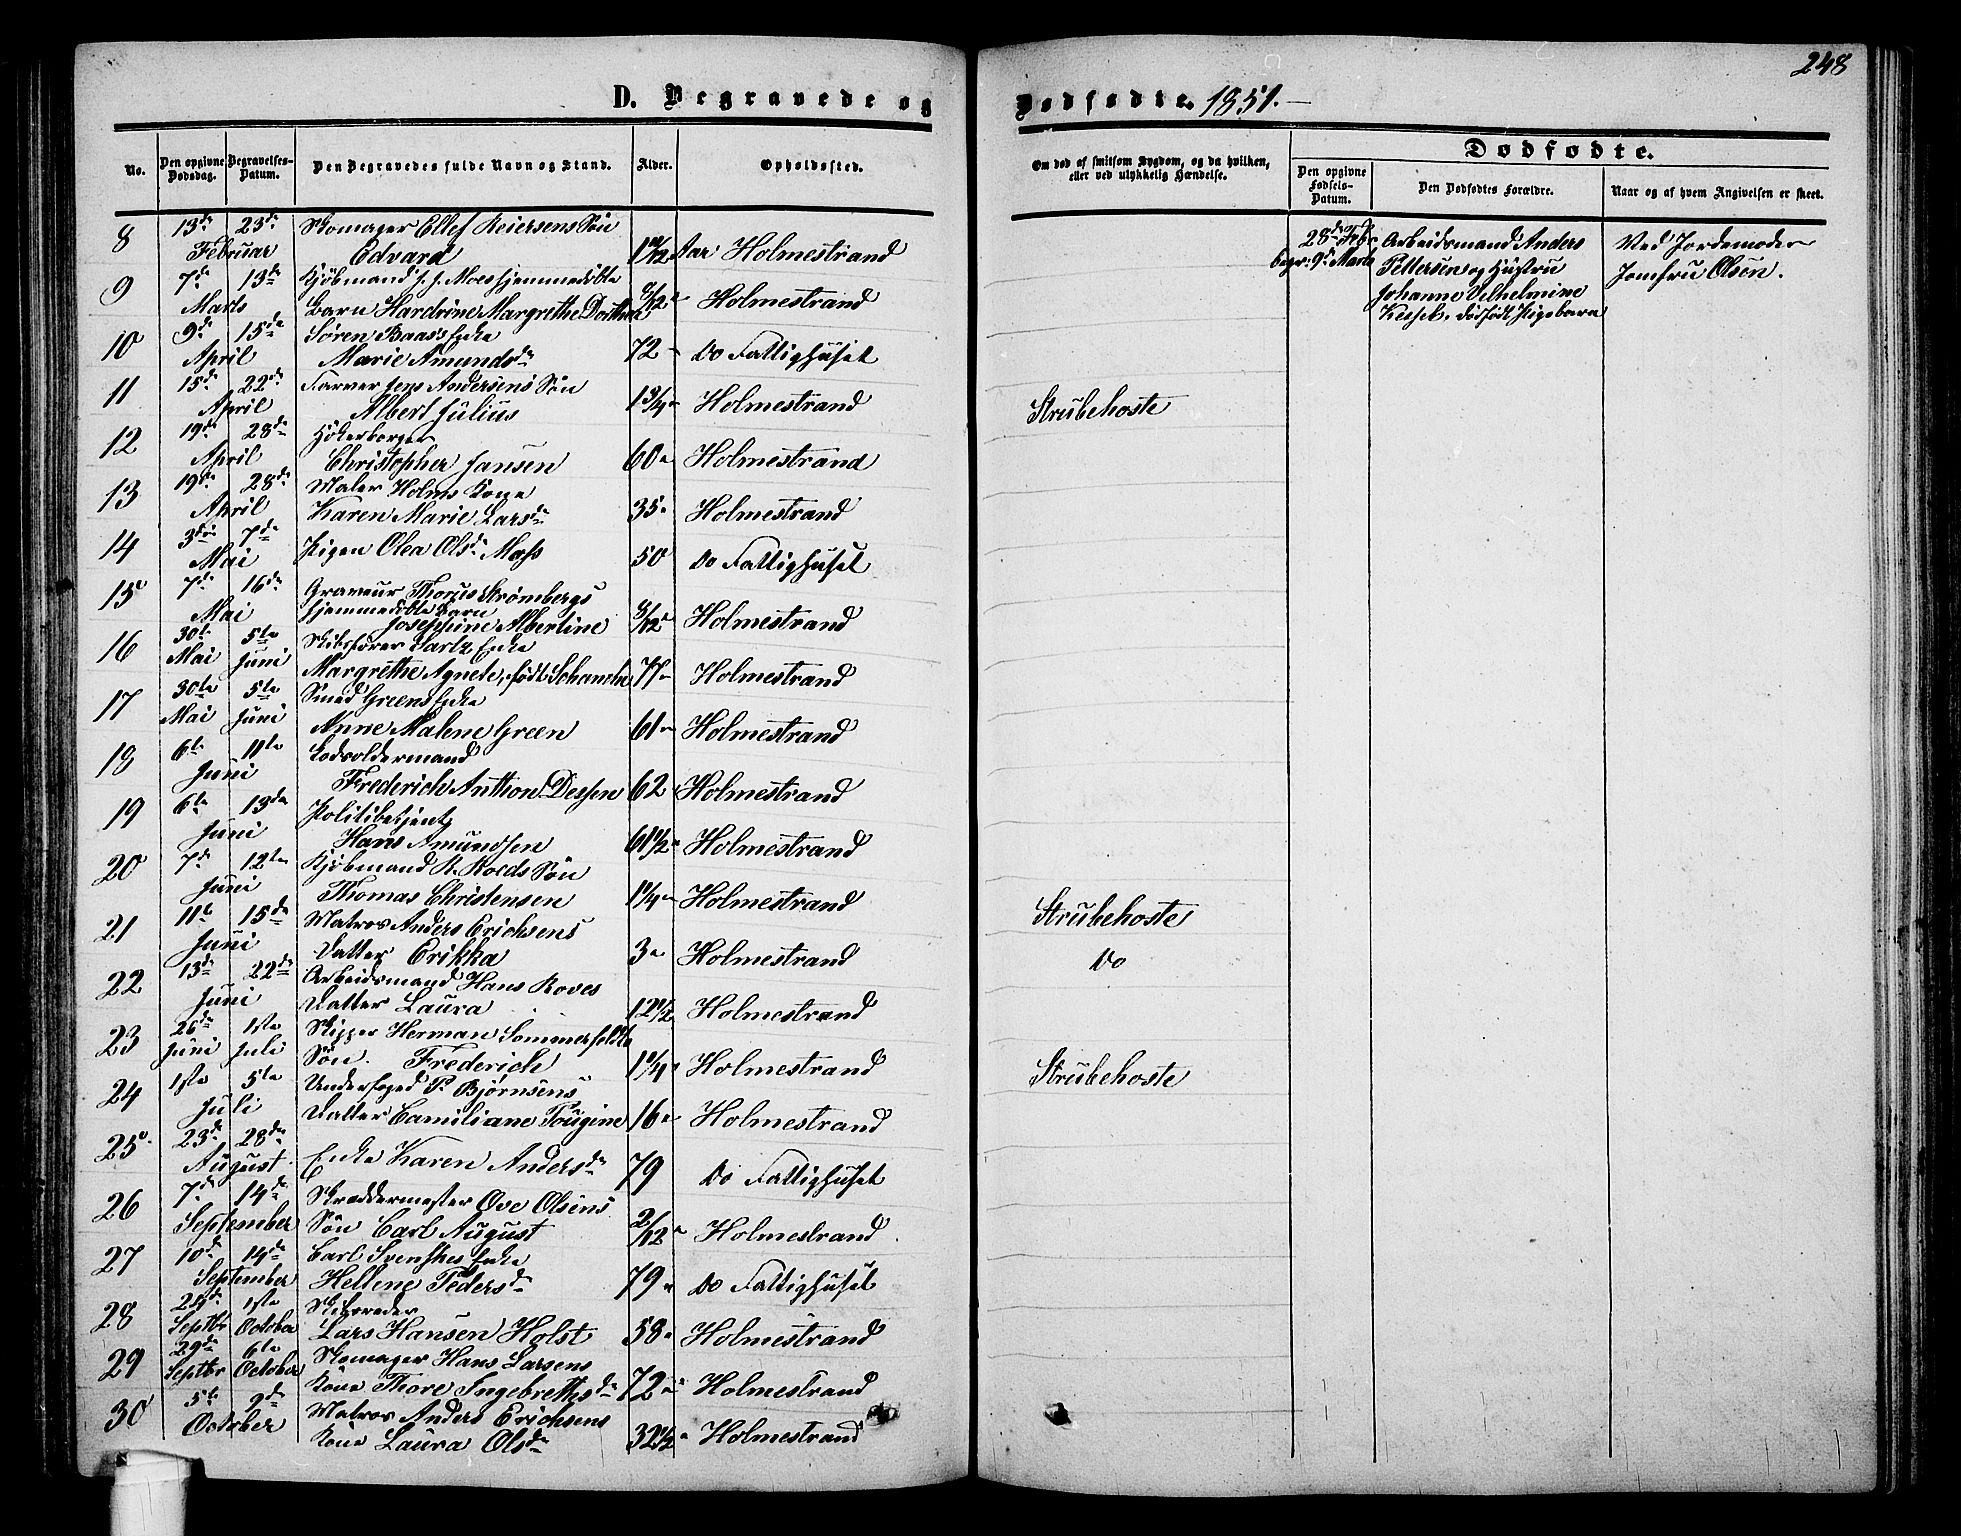 248
D. Begravede og Dødfødte. 1851.
No.
Den opgivne Dødsdag.
Begravelses-Datum.
Den Begravedes fulde Navn og Stand.
Alder.
Opholdssted.
Om død af smitsom Sygdom, og da hvilken, eller ved ulykkelig Hændelse.
Dødfødte.
Den opgivne Fødsels-Datum.
Den Dødfødtes Forældre.
Naar og af hvem Angivelsen er skeet.
8 13de 23de Skomager Ellef Reiersens Søn
Februar Edvard 1 1/2 Aar Holmestrand
9 7de 13de Kjøbmand J. J. Moes hjemmedøbte
Marts Barn Hardrine Margrethe Dorthea 8/12 Holmestrand
10 9de 15de Søren Baass Enke
April Marie Amundsdr 72 Do Fattighuset
11 15de 22de Farver Jens Andersens Søn
April Albert Julius 1 3/4 Holmestrand Strubehoste
12 19de 28de Høkerborger
April Christopher Jansen 60 Holmestrand
13 19de 28de Maler Holms Kone
April Karen Marie Larsdr 35 Holmestrand
14 3die 7de
Mai Pigen Olea Olsdr Moss 50 Do Fattighuset
15 7de 16de Graveur Thorus Strømbergs
Mai hjemmedøbte Barn
Josephine Albertine 8/12 Holmestrand
16 30te 5te Skibsfører Enke
Mai Juni Margrethe Agnete, født 77 Holmestrand
17 30te 5te Smed Greens Enke
Mai Juni Anne Malene Green 61 Holmestrand
18 6te 11te Lodsoldermand
Juni Frederich Anthon Dessen 62 Holmestrand
19 6te 13de Politibetjent
Juni Hans Amundsen 61 1/2 Holmestrand
20 7de 12te Kjøbmand R. Roeds Søn
Juni Thomas Christensen 1 1/4 Holmestrand Strubehoste
21 11te 15de Matros Anders Erichsens
Juni Datter Erikka 3 Holmestrand Do
22 13de 22de Arbeidsmand Hans Roves
Juni Datter Laura 12 1/2 Holmestrand
23 26de 1ste Skipper Herman Sommerfeldts
Juni Juli Søn. Frederich 1 1/4 Holmestrand Strubehoste
24 1ste 5te Underfoged P. Bjørnsens
Juli Datter Camiliane Tougine 16 Holmestrand
25 23de 28de
August Enke Karen Andersdr 79 Do Fattighuset
26 7de 14de Skræddermester Ove Olsens
September Søn Carl August 2/12 Holmestrand
27 10de 14de Carl Svenskes Enke
September Hellene Pedersdr 79 Do Fattighuset
28 1ste Skibsreder
Septbr October Lars Hansen Holst 58 Holmestrand
29 29de 6te Skomager Hans Larsens
Septbr October Kone Thore Ingebrethsdr 72 Holmestrand
30 5te 9de Matros Anders Erichsens
October Kone Laura Olsdr 32 1/2 Holmestrand
28de Febr. Arbeidsmand Anders Ved Jordemoder
begr: 9de Marts Pettersen og Hustru Jomfru Olsen.
Johanne Vilhelmine
dødfødt Pigebarn